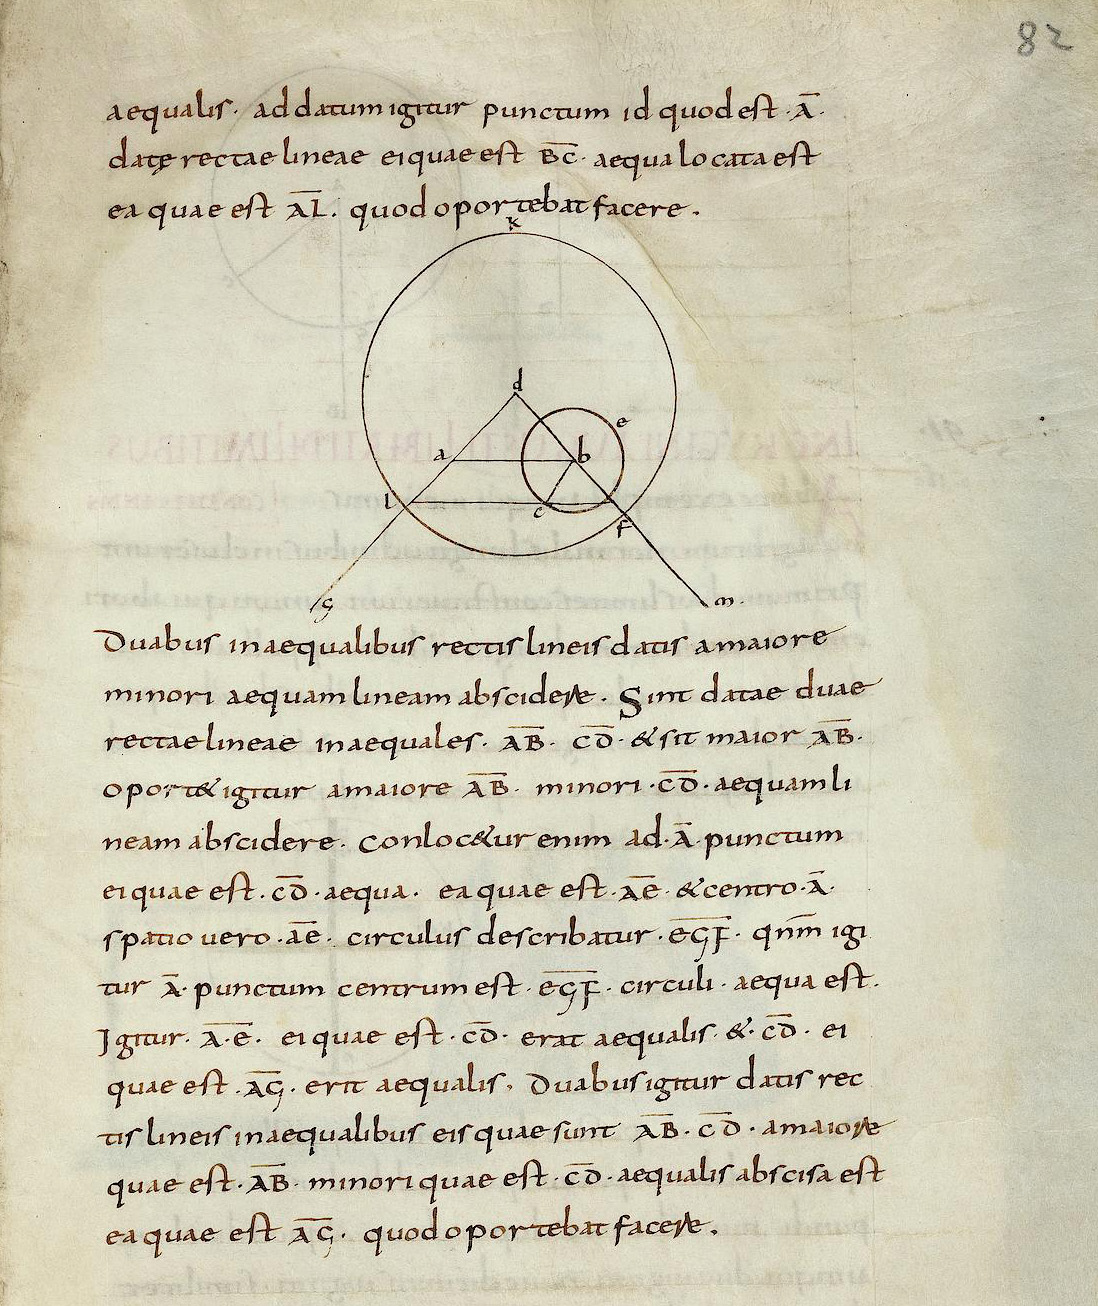 82
aequalis· ad datum igitur punctum id quod est ·A̅·
datę rectae lineae ei quae est B̅C̅· aequa locata est
ea quae est A̅L̅· quod oportebat facere.
k
d
e
a
b
l
c
f
g
m·
Duabus inaequalibus rectis lineis datis amaiore
minori aequam lineam abscidere· Sint datae duae
rectae lineae inaequales· A̅B̅· C̅D̅· & sit maior A̅B̅·
oport& igitur amaiore A̅B̅· minori ·C̅D̅· aequam li
neam abscidere· conloc&ur enim ad·A̅·punctum
ei quae est ·C̅D̅· aequa· ea quae est ·A̅E̅· & centro·A̅·
spatio uero ·A̅E̅· circulus describatur ·E̅G̅F̅· qnm̅ igi
tur A̅· punctum centrum est ·E̅G̅F̅· circuli· aequa est·
Igitur· A̅·E̅· ei quae est ·C̅D̅· erat aequalis· &·C̅D̅· ei
quae est ·A̅G̅· erit aequalis· Duabus igitur datis rec
tis lineis inaequalibus eis quae sunt A̅B̅·C̅D̅· amaiore
quae est·A̅B̅· minori quae est ·C̅D̅· aequalis abscisa est
ea quae est A̅G̅· quod oportebat facere.